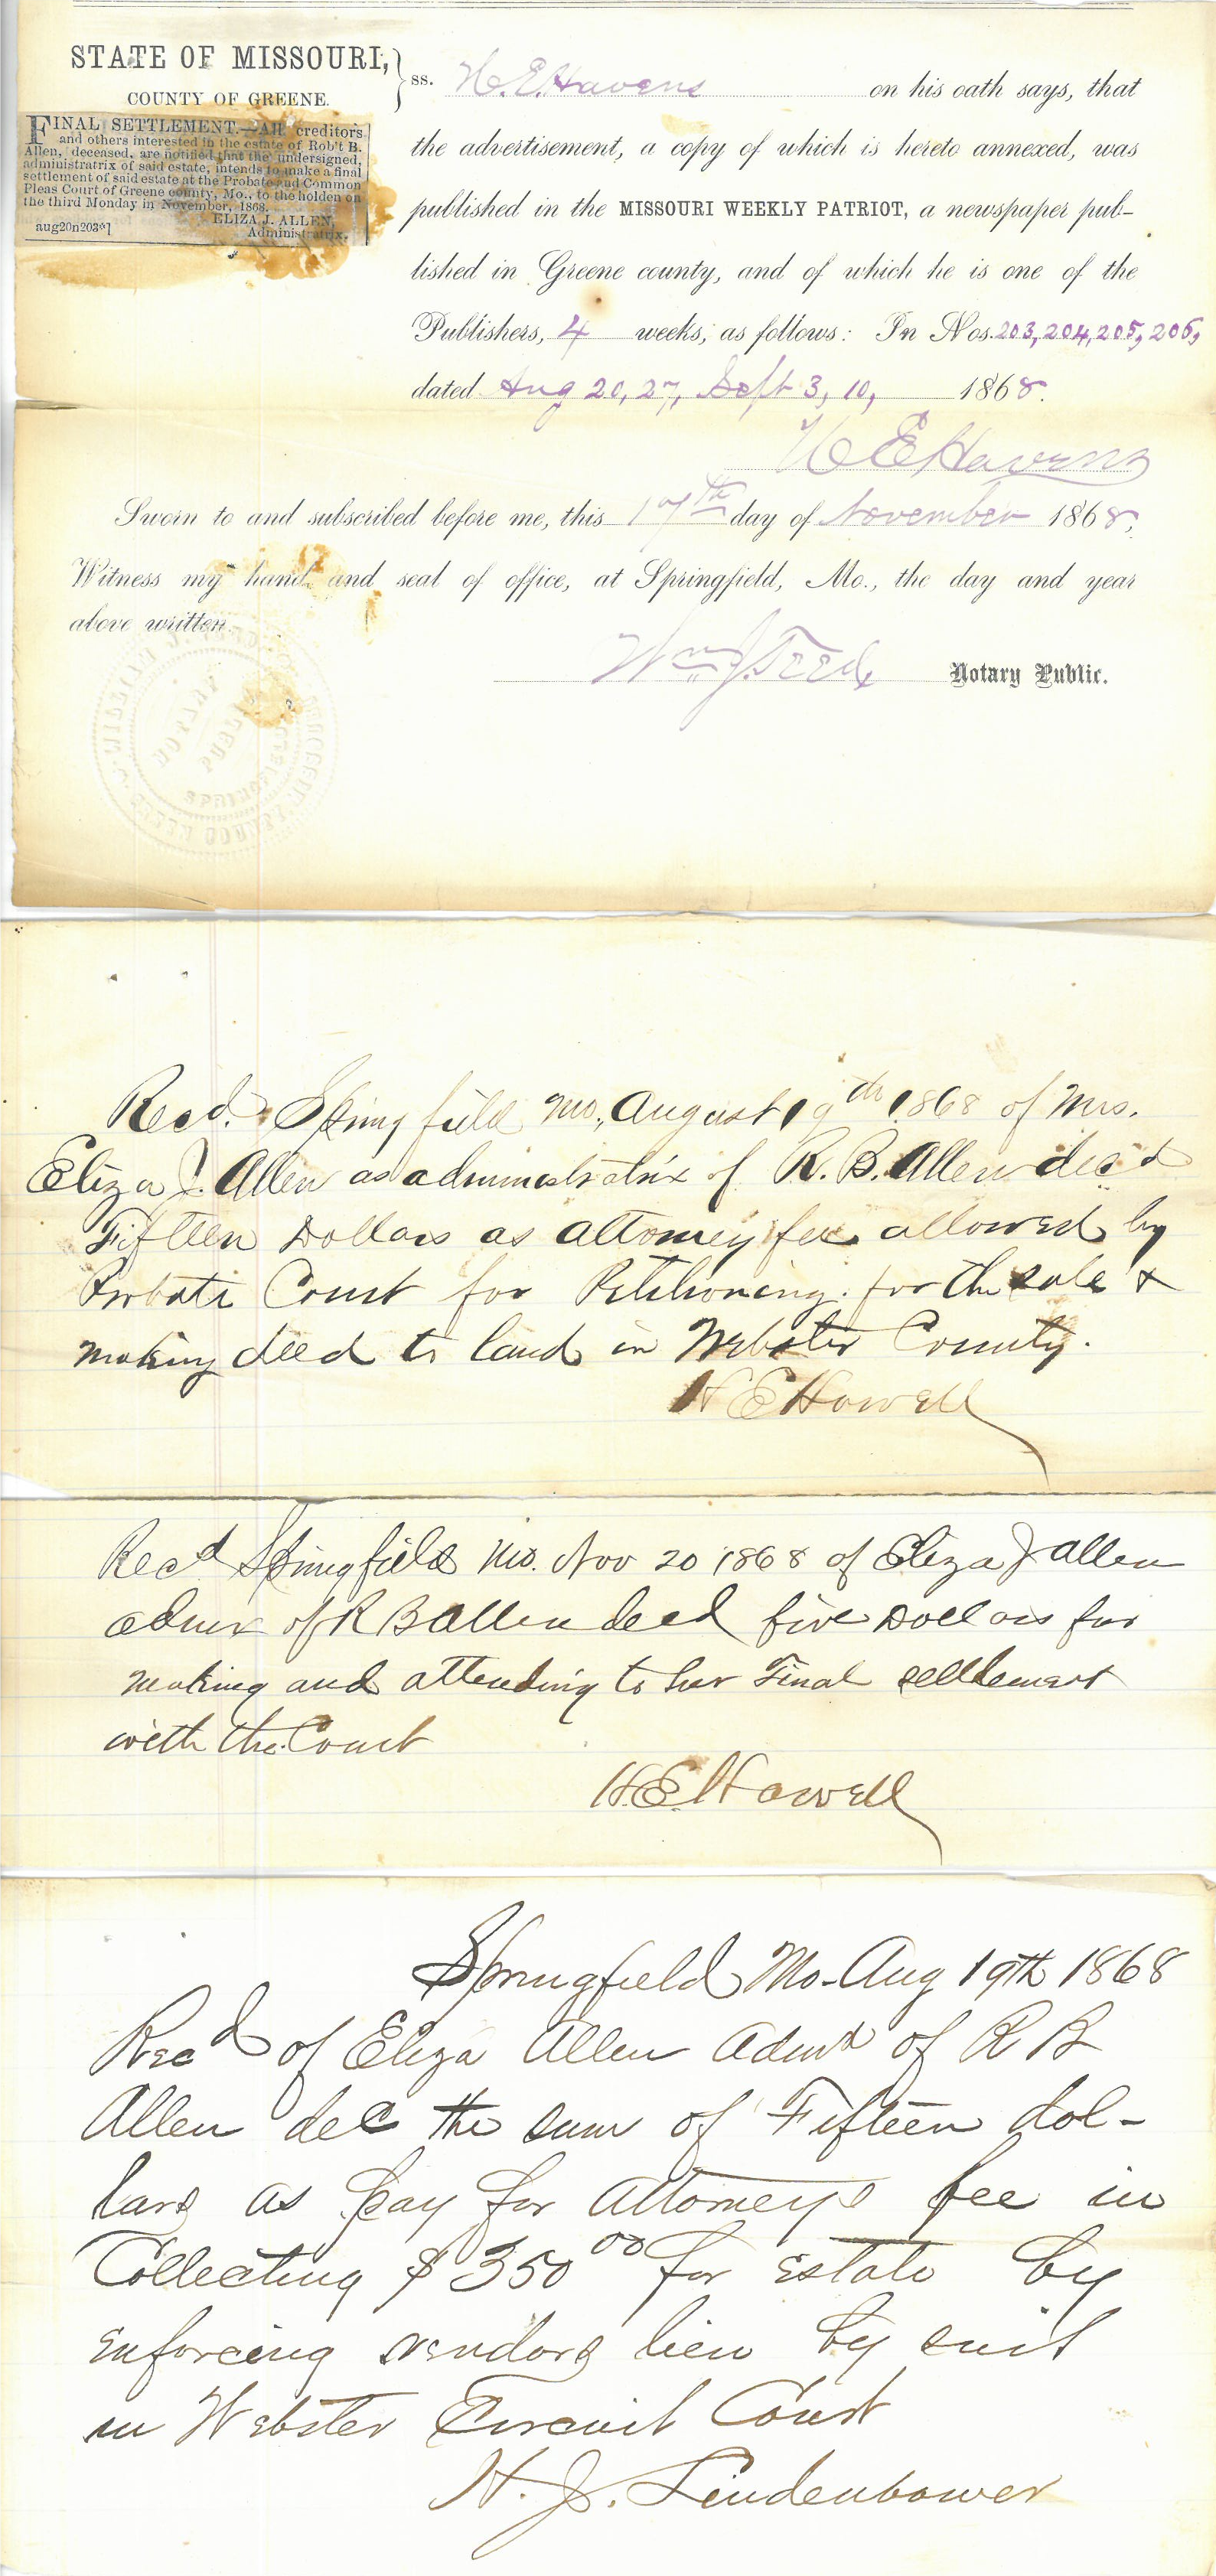 STATE OF MISSOURI,
COUNTY OF GREENE.
ss. H. E. Havens on his oath says, that
the advertisement, a copy of which is hereto annexed, was
published in the MISSOURI WEEKLY PATRIOT, a newspaper pub-
lished in Greene county, and of which he is one of the
Publishers, 4 weeks, as follows: In Nos. 203, 204, 205, 206,
dated Aug 20, 27, Sept 3, 10, 1868.
FINAL SETTLEMENT.—All creditors
and others interested in the estate of Rob't B.
Allen, deceased, are notified that the undersigned,
administratrix of said estate, intends to make a final
settlement of said estate at the Probate and Common
Pleas Court of Greene county, Mo., to be holden on
the third Monday in November, 1868.
ELIZA J. ALLEN,
aug20n203*1 Administratrix.
H E Havens
Sworn to and subscribed before me, this 17th day of November 1868,
Witness my hand and seal of office, at Springfield, Mo., the day and year
above written.
Wm J. Notary Public.
NOTARY
PUBLIC
Recd. Springfield Mo, August 19th 1868 of Mrs.
Eliza J. Allen as administratrix of R. B. Allen decd
Fifteen Dollars as attorney fee allowed by
Probate Court for Petitioning for the sale &
making deed to land in Webster County.
H E Howell
Recd Springfield Mo. Nov 20 1868 of Eliza J Allen
admx of R B Allen decd five Dollars for
making and attending to her Final settlement
with the Court
H. E. Howell
Springfield Mo - Aug 19th 1868
Recd of Eliza Allen Admx of R B
Allen dec the sum of Fifteen dol-
lars as pay for Attorneys fee in
Collecting $350 00 for Estate by
enforcing vendors lien by suit
in Webster Circuit Court
H. J. Lindenbower